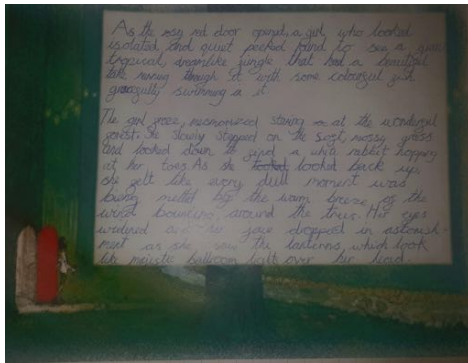 As the rosy red door opened, a girl, who looked
isolated and quiet peeked round to see a
tropical, dreamlike jungle that had a beautiful
lake running though it with some colourful fish
gracefully swimming in it
The girl froze, mesmorized staring at the wonderful
forest. She slowly stepped on the soft, mossy grass
and looked down to find a white rabbit hopping
at her toes. As she looked back up,
she felt like every dull moment was
being melted by the warm breeze of the
wind bouncing around the trees. Her eyes
widened and her jaw dropped in astonish-
ment as she saw the lanterns, which look
like majestic ballroom light over her head.